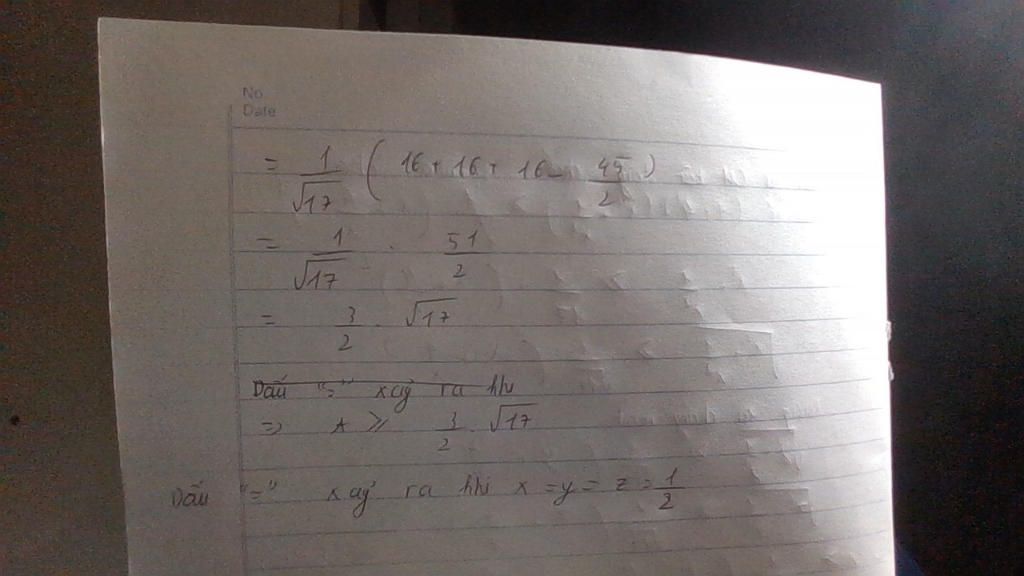 No
Date
= 1/√17 ( 16 + 16 + 16 - 45/2 )
= 1/√17 . 51/2
= 3/2 . √17
Dấu "=" xảy ra khi
=> A ≥ 3/2 . √17
Dấu "=" xảy ra khi x = y = z = 1/2